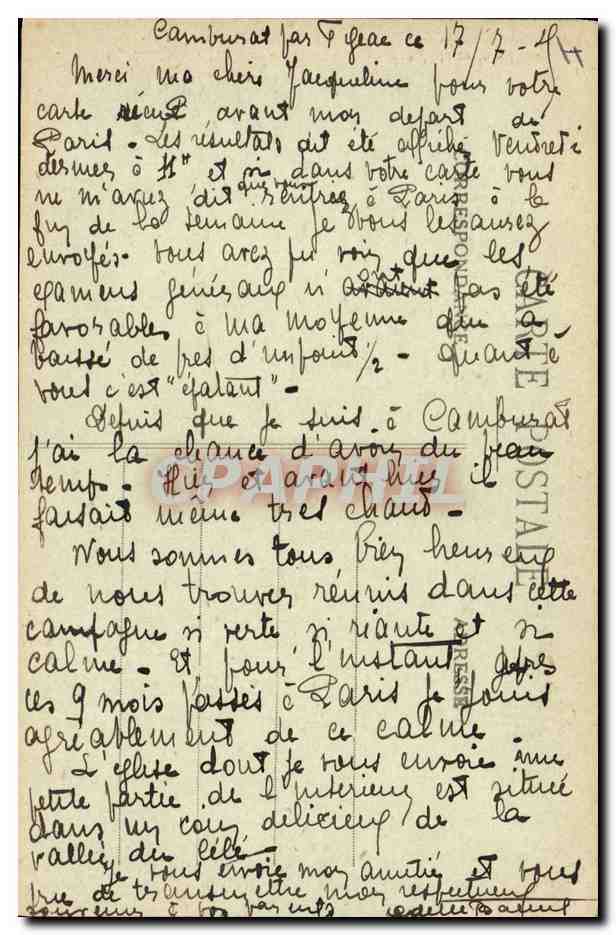 Camburat par Figeac ce 17/7-4
Merci ma chère Jacqueline pour votre
carte reçue avant mon depart de
Paris - Les résultats ont été affiché Vendredi
dernier à 11h et si dans votre carte vous
ne m'aviez dit que vous rentriez à Paris à la
fin de la semaine je vous les aurez
envoyés. Vous avez pu voir que les
examens généraux n'ont pas été
favorables à ma moyenne qui a
baissé de pres d'un point 1/2 - quant à
vous c'est "épatant" -
Depuis que je suis à Camburat
j'ai la chance d'avoir du beau
temps - Hier et avant hier il
faisait même tres chaud -
Nous sommes tous bien heureux
de nous trouver réunis dans cette
campagne si verte si riante et si
calme - Et pour l'instant apres
ces 9 mois passés à Paris je jouis
agréablement de ce calme.
L'église dont je vous envoie une
petite partie de l'interieur est situé
dans un coin delicieux de la
vallée du Célé -
Je vous envoie mon amitié et vous
prie de transmettre mon respectueux
souvenir à vos parents
CARTE POSTALE
CORRESPONDANCE
ADRESSE
CPAPHIL